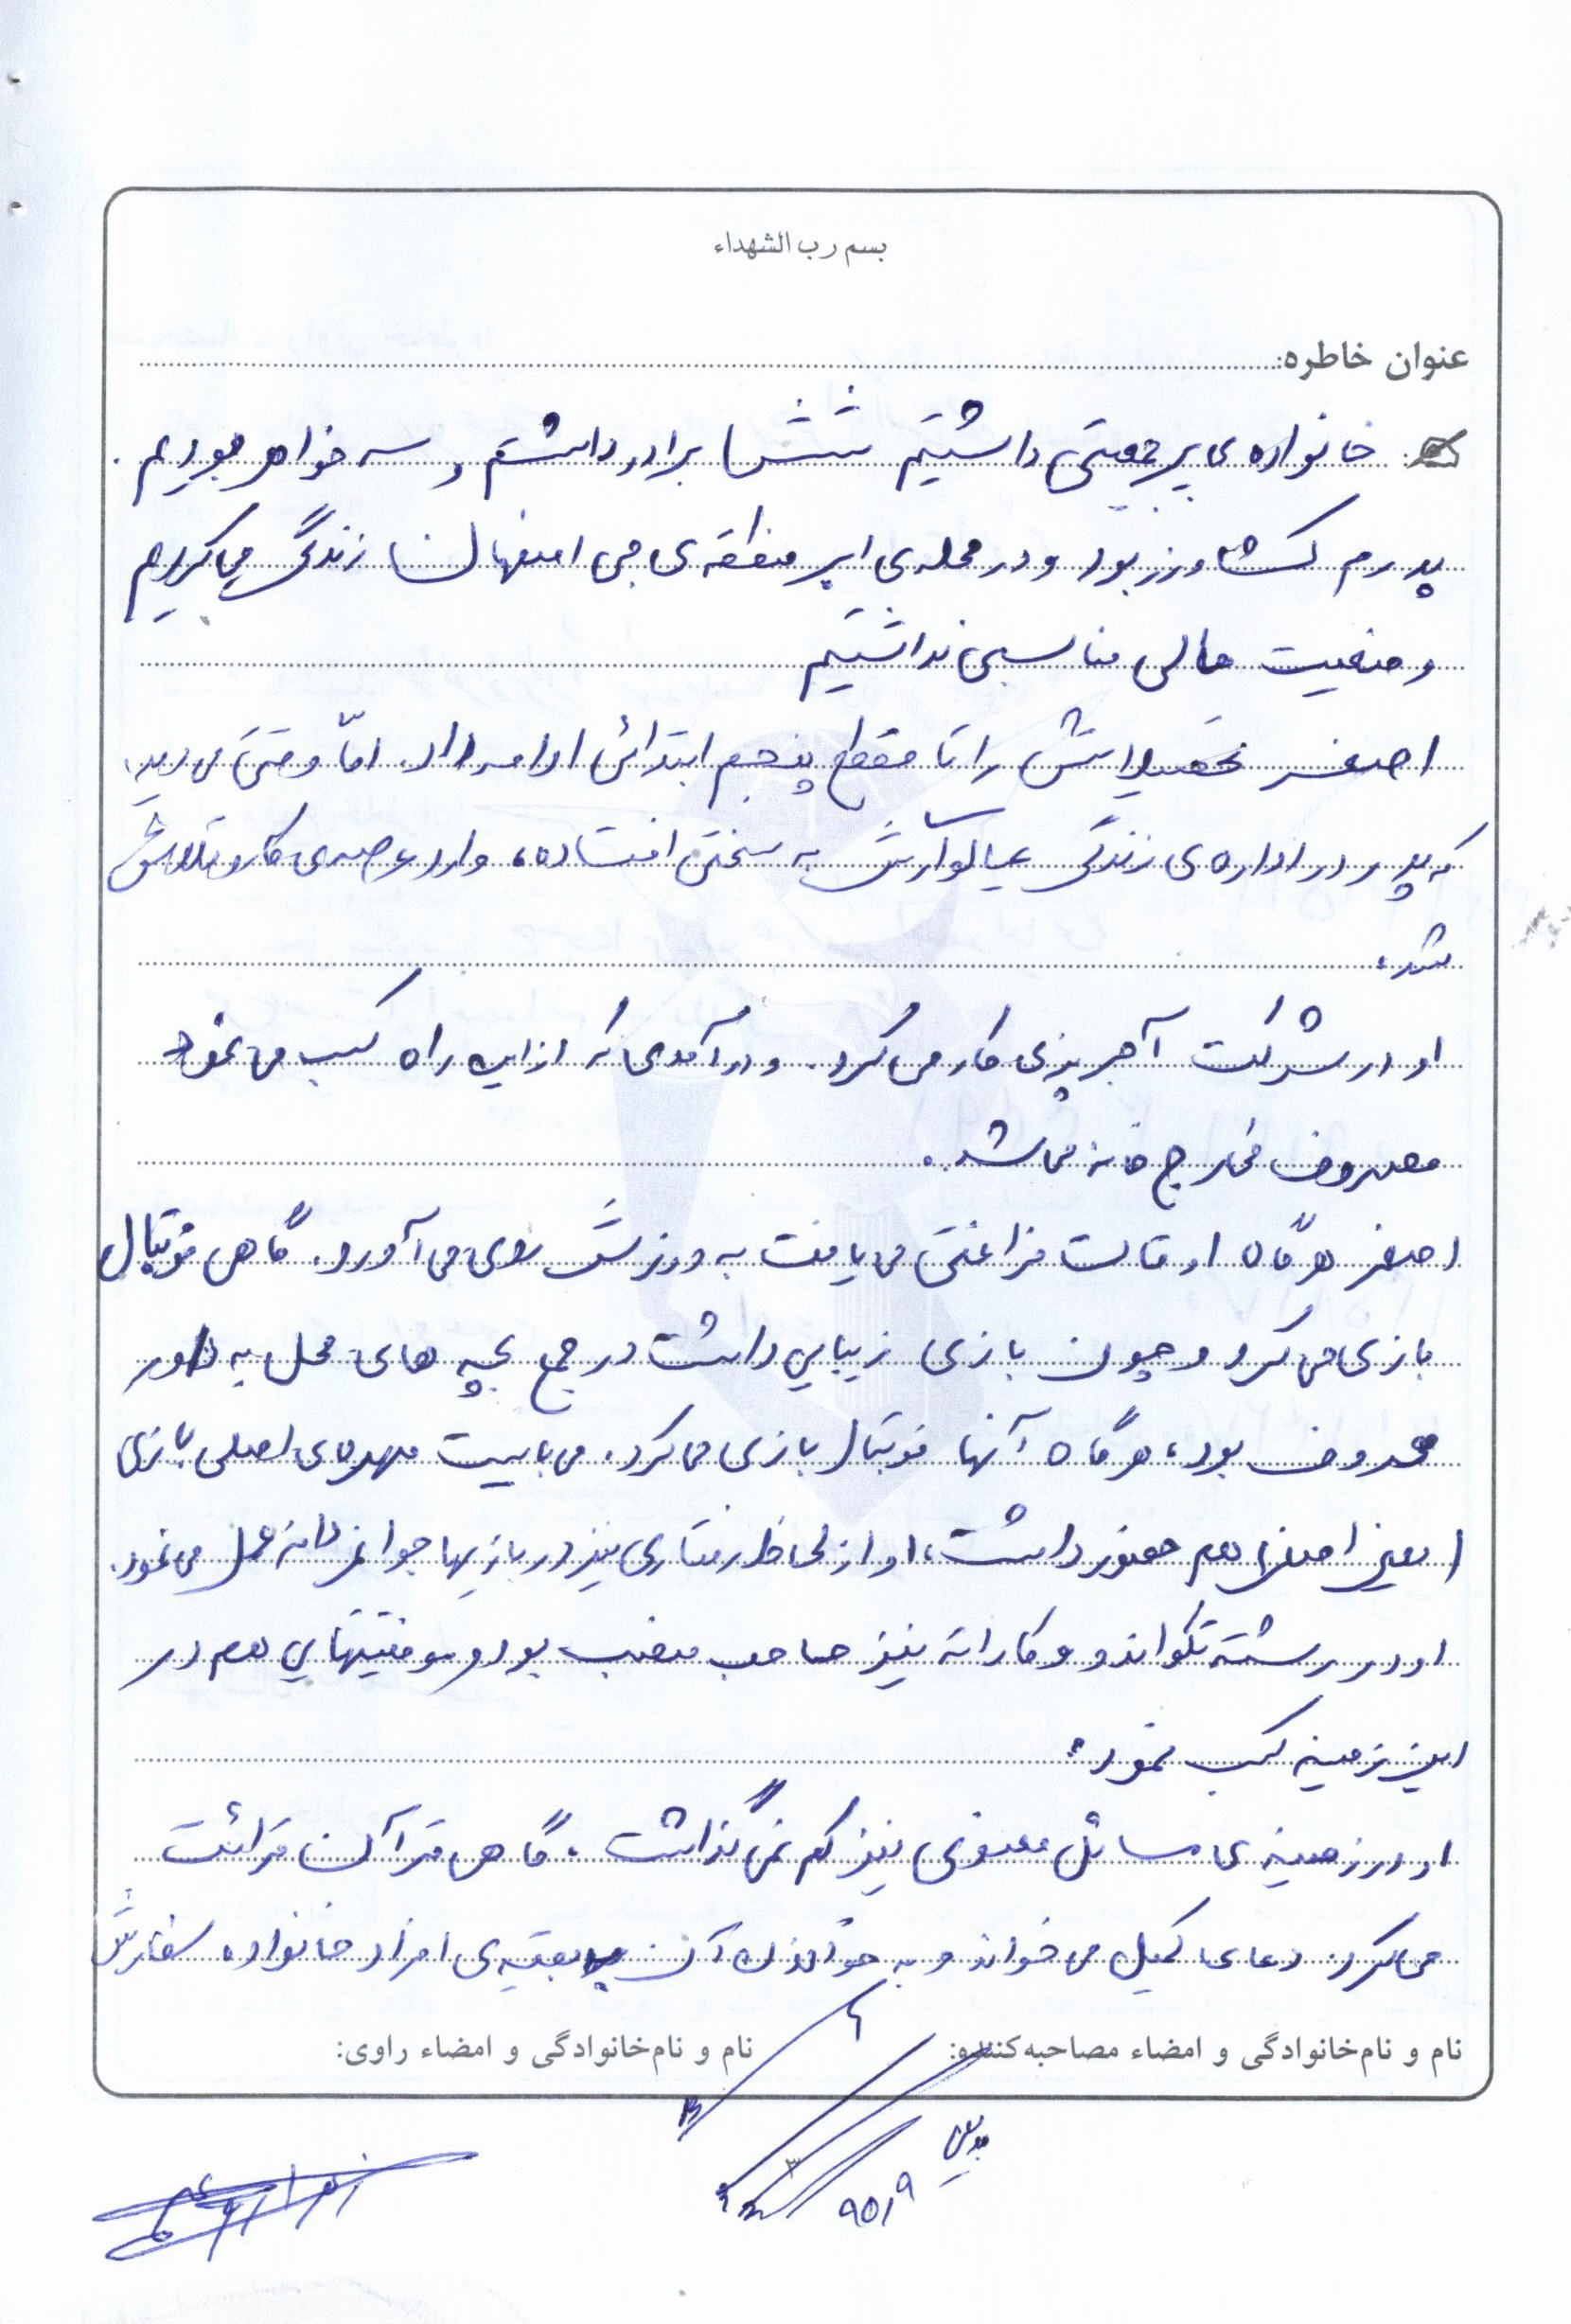 بسم رب الشهداء
عنوان خاطره:
خانواده ی پر جمعیتی داشتیم شش تا برادر داشتم و سه خواهر بودیم.
پدرم کشاورز بود و در محله ی ابر منطقه ی جی اصفهان زندگی می کردیم
وضعیت مالی مناسبی نداشتیم
اصغر تحصیلاتش را تا مقطع پنجم ابتدائی ادامه داد. امّا وقتی می دید،
که پدر در اداره ی زندگی عیالوارش به سختی افتاده، وارد عرصه ی کار و تلاش
شد.
او در شرکت آجر پزی کار می کرد. و درآمدی که از این راه کسب می نمود
مصروف مخارج خانه می شد.
اصغر هرگاه اوقات فراغتی می یافت به ورزش روی می آورد. گاهی فوتبال
بازی می کرد و چون بازی زیبایی داشت در جمع بچه های محل به
معروف بود، هرگاه آنها فوتبال بازی می کرد. می بایست مهره ی اصلی بازی
(یعنی اصغر) هم حضور داشت، او از لحاظ رفتاری نیز در بازیها جوانمردانه عمل می نمود.
او در رشته تکواندو و کاراته نیز صاحب منصب بود و موفقیتهایی هم در
این زمینه کسب نمود.
او در زمینه ی مسائل معنوی نیز کم نمی گذاشت. گاهی قرآن قرائت
می کرد. دعای کمیل می خواند و به خواندن آن به بقیه ی افراد خانواده سفارش
نام و نام‌خانوادگی و امضاء مصاحبه‌کننده:
نام و نام‌خانوادگی و امضاء راوی:
۳